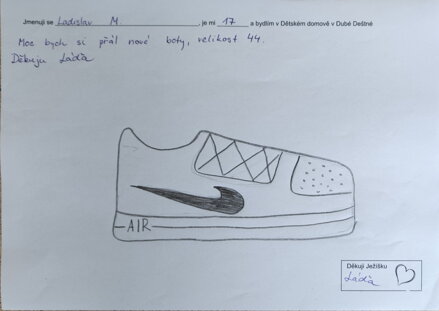 Jmenuji se Ladislav M. , je mi 17 a bydlím v Dětském domově v Dubé Deštné
Moc bych si přál nové boty, velikost 44.
Děkuju Láďa
AIR
Děkuji Ježíšku
Láďa